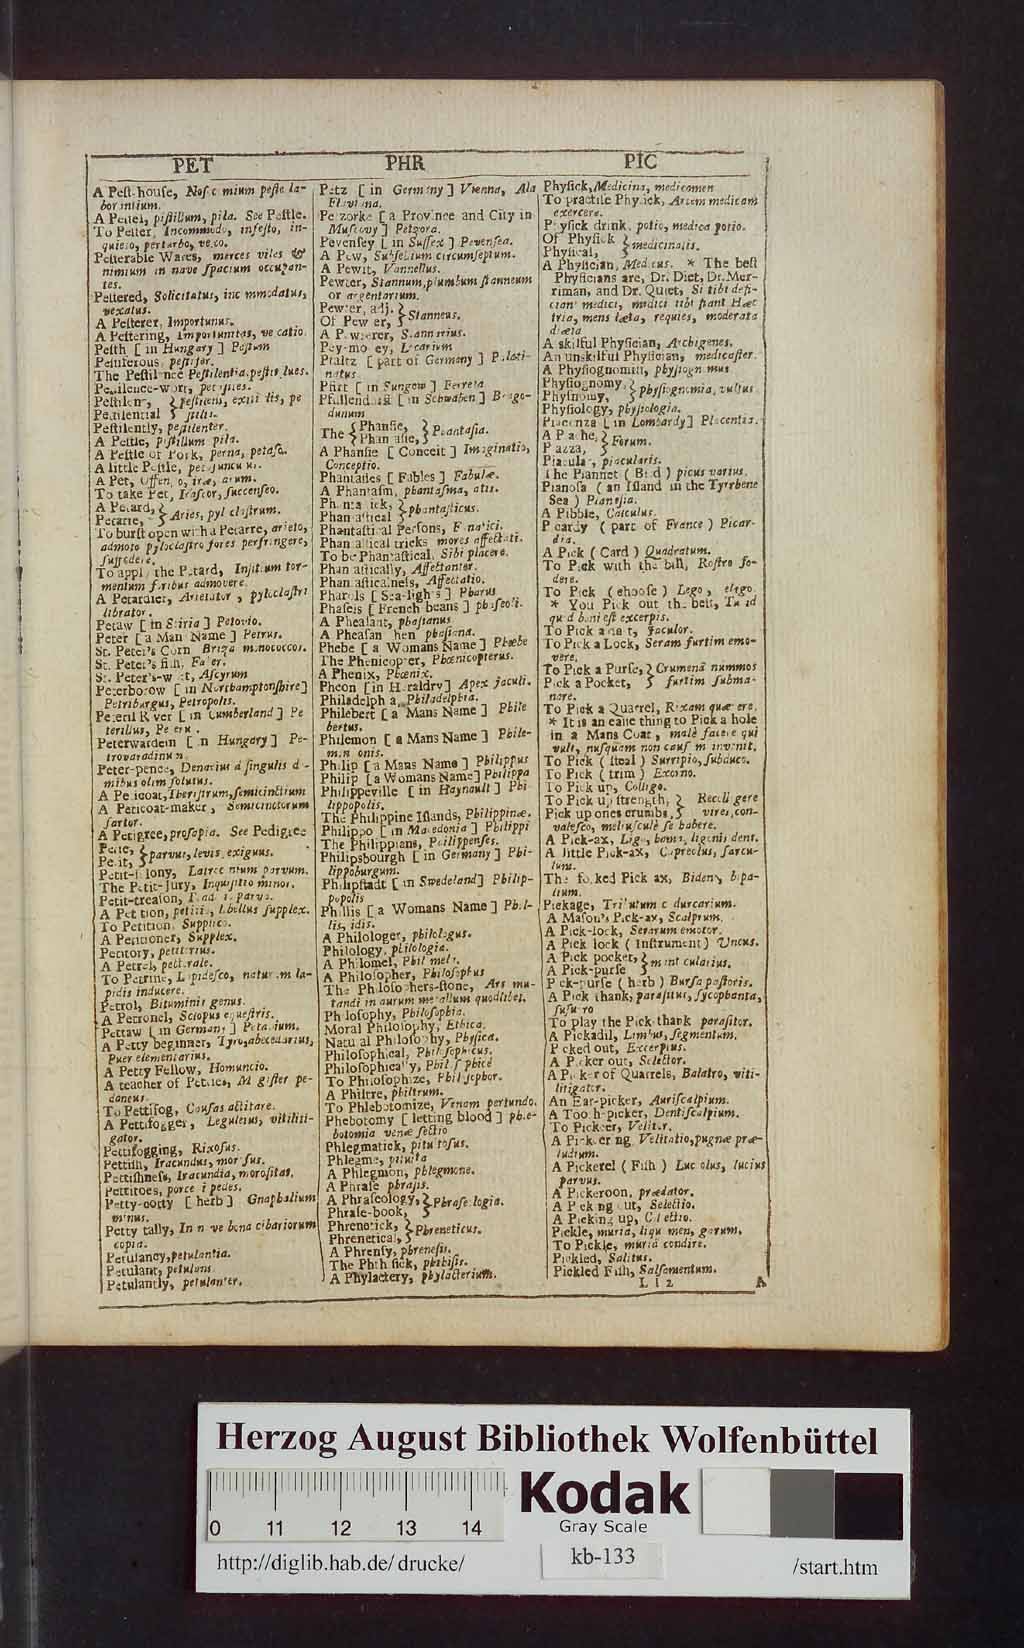 PET
A Pest-house, Noso mium peste la-
borantium.
A Pestel, pistillum, pila. See Pestle.
To Pester, Incommodo, infesto, in-
quieto, perturbo, vexo.
Pesterable Wares, merces viles &
nimium in nave spacium occupan-
tes.
Pestered, Solicitatus, inc mmodatus,
vexatus.
A Pesterer, Importunus.
A Pestering, Importunitas, vexatio.
Pesth [ in Hungary ] Pestum
Pestiferous, pestifer.
The Pestilence Pestilentia, pestis lues.
Pestilence-wort, petasites.
Pestilent, } pestilens, exitialis, pe
Pestilential } stilis.
Pestilently, pestilenter.
A Pestle, pistillum pila.
A Pestle of Pork, perna, petaso.
A little Pestle,
A Pet, Offensio, iræ, arum.
To take Pet, Irascor, succenseo.
A Petard, } Aries, pyloclastrum.
Petarre, }
To burst open with a Petarre, arieto,
admoto pyloclastro fores perfringere,
suffodere.
To apply the Petard, Institum tor-
mentum foribus admovere.
A Petardier, Arietator, pyloclastri
librator.
Petaw [ in Stiria ] Petovio.
Peter [ a Man Name ] Petrus.
St. Peter's Corn Briza monococcos.
St. Peter's fish, Faber.
St. Peter's-wort, Ascyrum
Peterborow [ in Northamptonshire]
Petriburgus, Petropolis.
Peteril River [ in Cumberland ] Pe
terillus,
Peterwardein [ in Hungary ] Pe-
trovaradinum.
Peter-pence, Denarius à singulis do-
mibus olim solutus.
A Peticoat, theristrum, semicinctium
A Peticoat-maker, Semicinctorum
sartor.
A Petigree, prosapia. See Pedigree
Petie, } parvus, levis, exiguus.
Petit, }
Petit-felony, Latrocinium parvum.
The Petit-Jury, Inquisitio minor.
Petit-treason,
A Petition, petitio, libellus supplex.
To Petition, Supplico.
A Petitioner, Supplex.
Petitory, petitorius.
A Petrel, pectorale.
To Petrifie, Lapidesco, naturam la-
pidis inducere.
Petrol, Bituminis genus.
A Petronel, Sclopus equestris.
Pettaw [ in Germany ] Petavium.
A Petty beginner, Tyro, abecedarius,
Puer elementarius.
A Petty Fellow, Homuncio.
A teacher of Petties, Magister pe-
daneus.
To Pettifog, Causas actitare.
A Pettifogger, Leguleius, vitiliti-
gator.
Pettifogging, Rixosus.
Pettish, Iracundus, morosus.
Pettishness, Iracundia, morositas.
Pettitoes, porcelli pedes.
Petty-cotty [ herb ] Gnaphalium
minus.
Petty tally, In nave bona cibariorum
copia.
Petulancy, petulantia.
Petulant, petulans
Petulantly, petulanter.
PHR
Petz [ in Germany ] Vienna, Ala
Flaviana.
Petzorke [ a Province and City in
Muscovy ] Petzora.
Pevensey [ in Sussex ] Pevensea.
A Pew, Subsellium circumseptum.
A Pewit, Vannellus.
Pewter, Stannum, plumbum stanneum
or argentarium.
Pewter, adj. } Stanneus.
Of Pewter, }
A Pewterer, Stannarius.
Pey-money, Locarium
Pfaltz [ part of Germany ] Palati-
natus.
Pfirt [ in Sungow ] Ferreta
Pfullendorff [ in Schwaben ] Brago-
dunum
The { Phansie, } Phantasia.
{ Phantasie, }
A Phansie [ Conceit ] Imaginatio,
Conceptio.
Phantasies [ Fables ] Fabulæ.
A Phantasm, phantasma, atis.
Phantastick, } phantasticus.
Phantastical }
Phantastical Persons, Fanatici.
Phantastical tricks mores affectati.
To be Phantastical, Sibi placere.
Phantastically, Affectanter.
Phantasticalness, Affectatio.
Pharols [ Sea-lights ] Pharus
Phasels [ French beans ] phaseoli.
A Pheasant, phasianus
A Pheasan hen phasiana.
Phebe [ a Womans Name ] Phœbe
The Phenicopter, Phœnicopterus.
A Phenix, Phœnix.
Pheon [ in Heraldry] Apex jaculi.
Philadelphia, Philadelphia.
Philebert [ a Mans Name ] Phile
bertus.
Philemon [ a Mans Name ] Phile-
monis.
Philip [ a Mans Name ] Philippus
Philip [ a Womans Name] Philippa
Philippeville [ in Haynault ] Phi
lippopolis.
The Philippine Islands, Philippinæ.
Philippo [ in Macedonia ] Philippi
The Philippians, Philippenses.
Philipsbourgh [ in Germany ] Phi-
lippoburgum.
Philipstadt [ in Swedeland] Philip-
popolis
Phillis [ a Womans Name ] Phil-
lis, idis.
A Philologer, philologus.
Philology, philologia.
A Philomel, Philomela.
A Philosopher, Philosophus
The Philosophers-stone, Ars mu-
tandi in aurum metallum quodlibet.
Philosophy, Philosophia.
Moral Philosophy, Ethica.
Natural Philosophy, Physica.
Philosophical, Philosophicus.
Philosophically, Philosophicè
To Philosophize, Philosophor.
A Philtre, philtrum.
To Phlebotomize, Venam pertundo.
Phebotomy [ letting blood ] phle-
botomia venæ sectio
Phlegmatick, pituitosus.
Phlegme, pituita
A Phlegmon, phlegmone.
A Phrase phrasis.
A Phraseology, } Phraseologia.
Phrase-book, }
Phrenetick, } Phreneticus.
Phrenetical, }
A Phrensy, phrenesis.
The Phthisick, phthisis.
A Phylactery, phylacterium.
PIC
Physick, Medicina, medicamen
To practise Physick, Artem medicam
exercere.
Physick drink, potio, medica potio.
Of Physick } medicinalis.
Physical, }
A Physician, Medicus. * The best
Physicians are, Dr. Diet, Dr. Mer-
riman, and Dr. Quiet, Si tibi defi-
ciant medici, medici tibi fiant Hæc
tria, mens læta, requies, moderata
diæta
A skilful Physician, Archigenes.
An unskilful Physician, medicaster.
A Physiognomist, physiognomus
Physiognomy, } physiognomia, vultus
Physnomy, }
Physiology, physiologia.
Piacenza [ in Lombardy] Placentia.
A Piache, } Forum.
Piazza, }
Piacular, piacularis.
The Piannet ( Bird ) picus varius.
Pianosa ( an Island in the Tyrrhene
Sea ) Planasia.
A Pibble, Calculus.
Picardy ( part of France ) Picar-
dia.
A Pick ( Card ) Quadratum.
To Pick with the bill, Rostro fo-
dere.
To Pick (choose ) Lego, eligo
* You Pick out the best, Tu id
quod boni est excerpis.
To Pick a dart, Jaculor.
To Pick a Lock, Seram furtim emo-
vere.
To Pick a Purse, } Crumenâ nummos
Pick a Pocket, } furtim subma-
nare.
To Pick a Quarrel, Rixam quærere.
* It is an easie thing to Pick a hole
in a Mans Coat, malè facere qui
vult, nusquam non causam invenit.
To Pick ( steal ) Surripio, subduco.
To Pick ( trim ) Exorno.
To Pick up, Colligo.
To Pick up strength, } Recolligere
Pick up ones crumbs, } vires, con-
valesco, meliusculè se habere.
A Pick-ax, Ligo, bonis, ligonis dens.
A little Pick-ax, Capreolus, sarcu-
lum.
The forked Pick ax, Bidens, bipa-
lium.
Pickage, Tributum
A Mason's Pick-ax, Scalprum.
A Pick-lock, Serarum emotor.
A Pick lock ( Instrument ) Uncus.
A Pick pocket, } manticularius.
A Pick-purse }
Pick-purse ( herb ) Bursa pastoris.
A Pick thank, parasitus, sycophanta,
susurro
To play the Pick thank parasitor.
A Pickadil, Limbus, segmentum.
Picked out, Excerptus.
A Picker out, Selector.
A Picker of Quarrels, Balatro, viti-
litigator.
An Ear-picker, Auriscalpium.
A Tooth-picker, Dentiscalpium.
To Pickeer, Velitor.
A Pickering, Velitatio, pugnæ præ-
ludium.
A Pickerel ( Fish ) Lucolus, lucius
parvus.
A Pickeroon, prædator.
A Picking out, Selectio.
A Picking up, Collectio.
Pickle, muria, liquamen, garum.
To Pickle, muriâ condire.
Pickled, Salitus.
Pickled Fish, Salsamentum.
L l 2 A
Herzog August Bibliothek Wolfenbüttel
0 11 12 13 14
Kodak
Gray Scale
http://diglib.hab.de/drucke/ kb-133 /start.htm